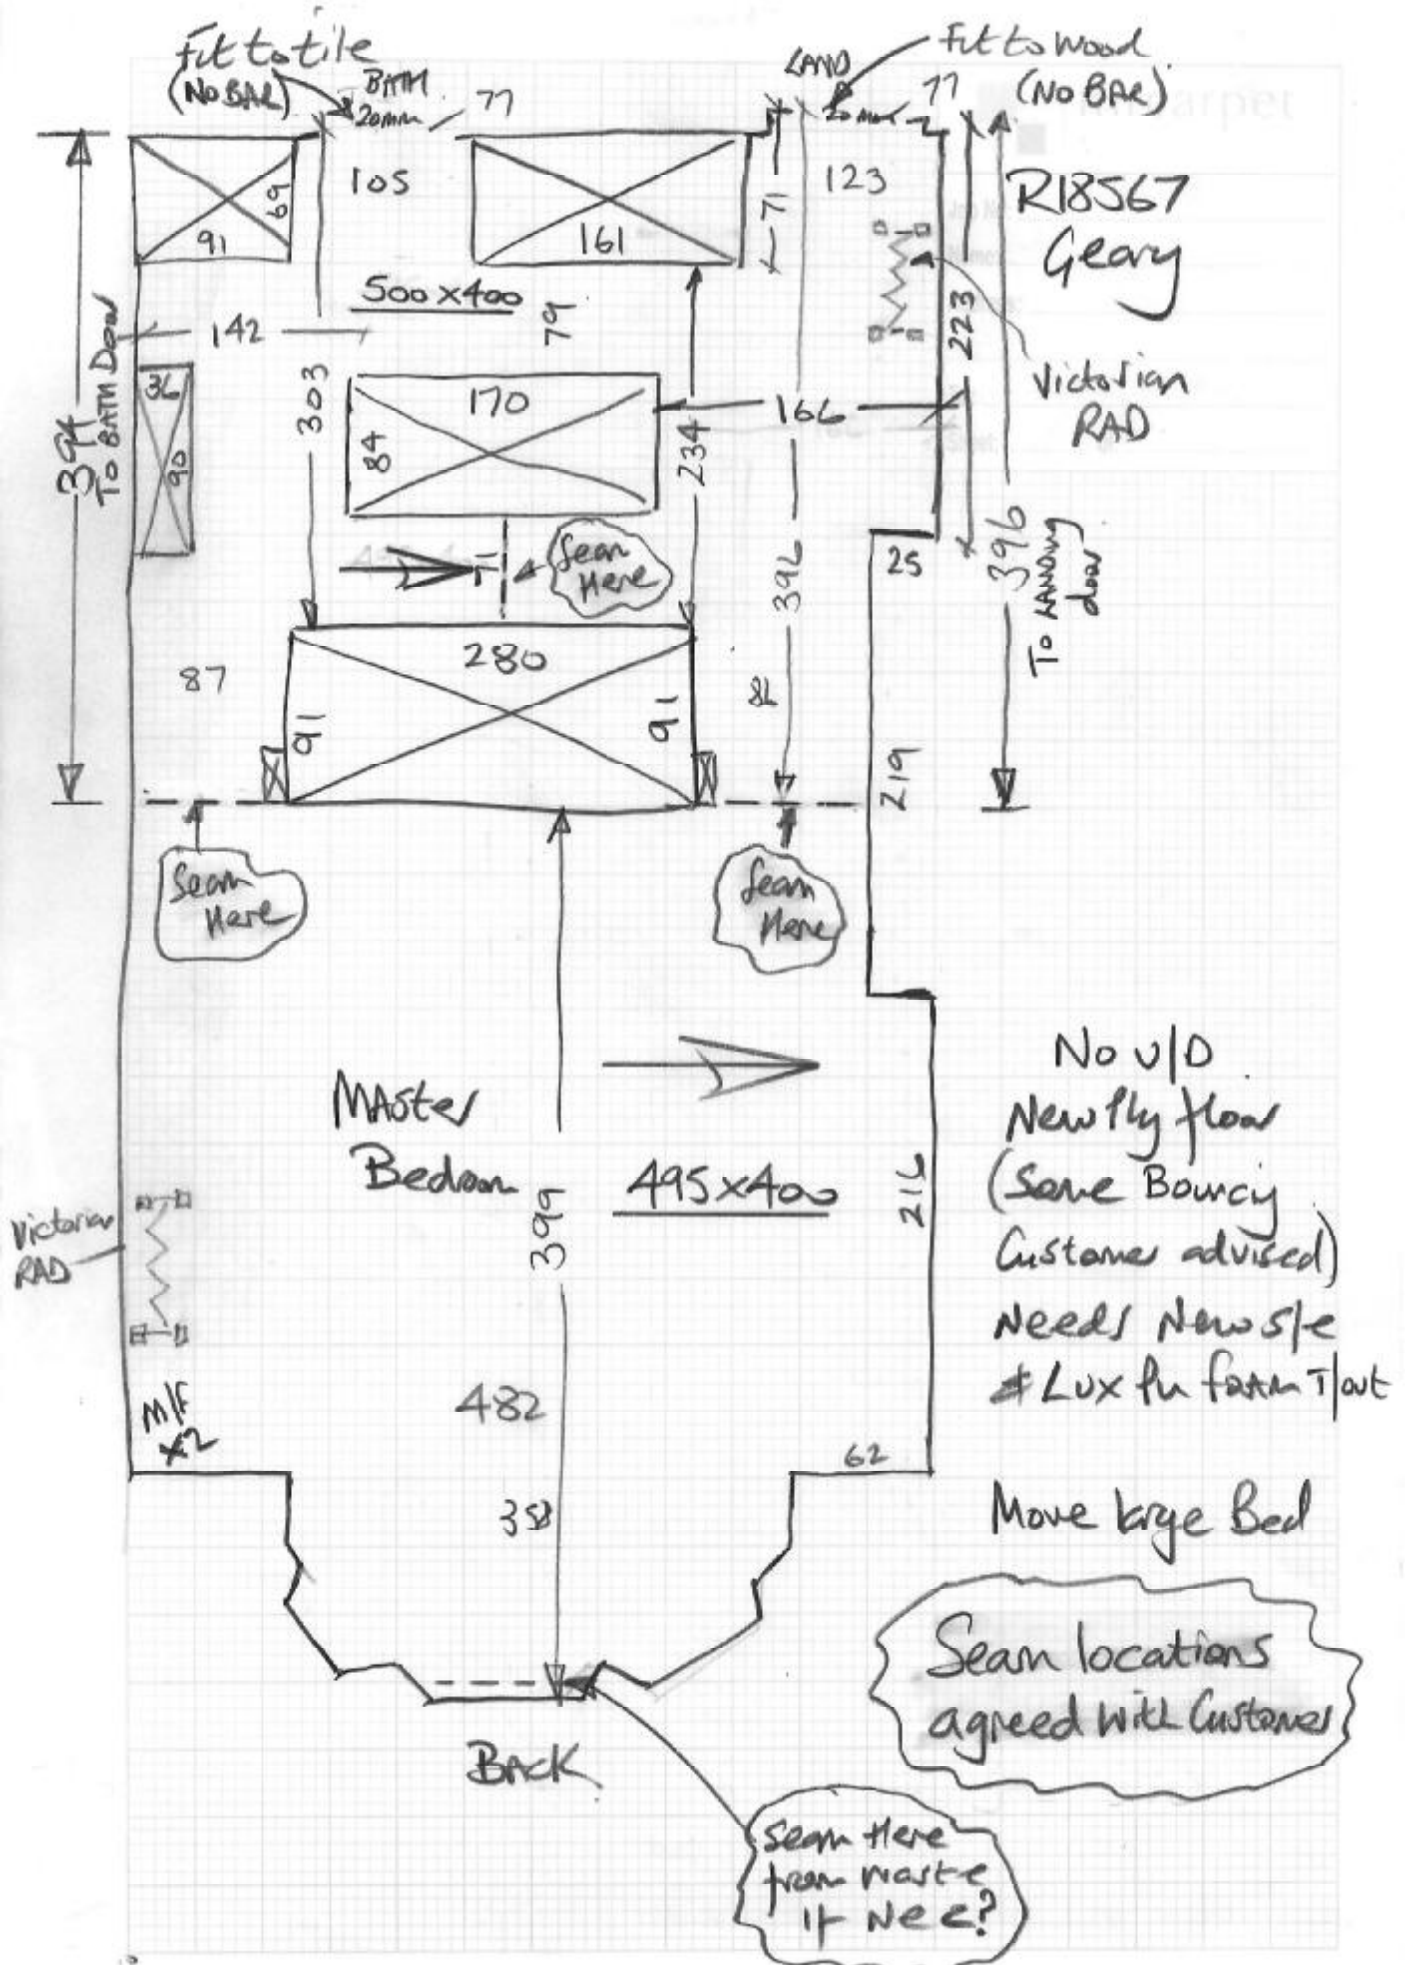 Fit to tile
(NO BAR)
BATH
20mm
77
LAND
Fit to wood
(NO BAR)
77
20mm
R18567
Geary
105
123
69
91
161
71
500x400
79
142
394
To BATH Door
36
90
303
170
84
234
166
223
Victorian
RAD
396
396
To LANDING
door
25
Seam
Here
280
87
91
91
86
219
Seam
Here
Seam
Here
Master
Bedroom
495x400
399
216
No U/D
New Ply floor
(Some Bouncy
Customer advised)
Needs New s/e
& Lux Pu foam T/out
Victorian
RAD
482
M/F
x2
62
358
Move large Bed
Seam locations
agreed with Customer
BACK
Seam Here
from waste
if Nec?